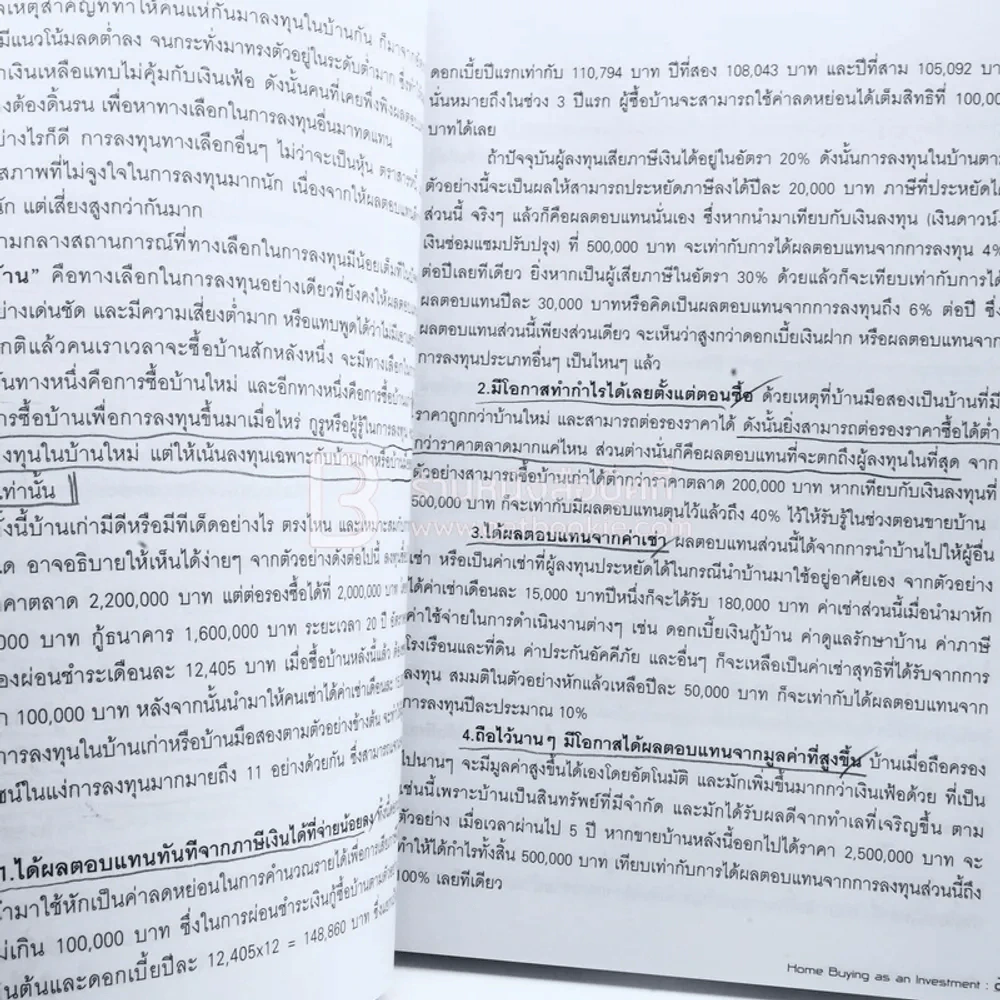 เหตุสำคัญที่ทำให้คนแห่กันมาลงทุนในบ้านกัน ก็มาจาก
มีแนวโน้มลดต่ำลง จนกระทั่งมาทรงตัวอยู่ในระดับต่ำมาก
เงินเหลือแทบไม่คุ้มกับเงินเฟ้อ ดังนั้นคนที่เคยพึ่งพิง
ต้องดิ้นรน เพื่อหาทางเลือกในการลงทุนอื่นมาทดแทน
อย่างไรก็ดี การลงทุนทางเลือกอื่นๆ ไม่ว่าจะเป็นหุ้น
สภาพที่ไม่จูงใจในการลงทุนมากนัก เนื่องจากให้ผลตอบแทน
นัก แต่เสี่ยงสูงกว่ากันมาก
ามกลางสถานการณ์ที่ทางเลือกในการลงทุนมีน้อยเต็มที
้าน” คือทางเลือกในการลงทุนอย่างเดียวที่ยังคงให้ผล
อย่างเด่นชัด และมีความเสี่ยงต่ำมาก หรือแทบพูดได้ว่าไม่มี
กติแล้วคนเราเวลาจะซื้อบ้านสักหลังหนึ่ง จะมีทางเลือก
ันทางหนึ่งคือการซื้อบ้านใหม่ และอีกทางหนึ่งคือการซื้อบ้าน
ารซื้อบ้านเพื่อการลงทุนขึ้นมาเมื่อไหร่ กูรูหรือผู้รู้ในการลงทุน
งทุนในบ้านใหม่ แต่ให้เน้นลงทุนเฉพาะกับบ้านเก่าหรือบ้าน
เท่านั้น
ังนี้บ้านเก่ามีดีหรือมีทีเด็ดอย่างไร ตรงไหน และเหมาะสม
ด อาจอธิบายให้เห็นได้ง่ายๆ จากตัวอย่างดังต่อไปนี้
าคาตลาด 2,200,000 บาท แต่ต่อรองซื้อได้ที่ 2,000,000 บาท
000 บาท กู้ธนาคาร 1,600,000 บาท ระยะเวลา 20 ปี
องผ่อนชำระเดือนละ 12,405 บาท เมื่อซื้อบ้านหลังนี้แล้ว
ก 100,000 บาท หลังจากนั้นนำมาให้คนเช่าได้ค่าเช่าเดือนละ
การลงทุนในบ้านเก่าหรือบ้านมือสองตามตัวอย่างข้างต้น
ชน์ในแง่การลงทุนมากมายถึง 11 อย่างด้วยกัน ซึ่งสามารถ
1.ได้ผลตอบแทนทันทีจากภาษีเงินได้ที่จ่ายน้อยลง
นำมาใช้หักเป็นค่าลดหย่อนในการคำนวณรายได้เพื่อการเสีย
ม่เกิน 100,000 บาท ซึ่งในการผ่อนชำระเงินกู้ซื้อบ้านตาม
ินต้นและดอกเบี้ยปีละ 12,405x12 = 148,860 บาท
ดอกเบี้ยปีแรกเท่ากับ 110,794 บาท ปีที่สอง 108,043 บาท และปีที่สาม 105,092 บา
นั่นหมายถึงในช่วง 3 ปีแรก ผู้ซื้อบ้านจะสามารถใช้ค่าลดหย่อนได้เต็มสิทธิที่ 100,00
บาทได้เลย
ถ้าปัจจุบันผู้ลงทุนเสียภาษีเงินได้อยู่ในอัตรา 20% ดังนั้นการลงทุนในบ้านตาม
ตัวอย่างนี้จะเป็นผลให้สามารถประหยัดภาษีลงได้ปีละ 20,000 บาท ภาษีที่ประหยัดได้
ส่วนนี้ จริงๆ แล้วก็คือผลตอบแทนนั่นเอง ซึ่งหากนำมาเทียบกับเงินลงทุน (เงินดาวน์
เงินซ่อมแซมปรับปรุง) ที่ 500,000 บาท จะเท่ากับการได้ผลตอบแทนจากการลงทุน 4%
ต่อปีเลยทีเดียว ยิ่งหากเป็นผู้เสียภาษีในอัตรา 30% ด้วยแล้วก็จะเทียบเท่ากับการได้
ผลตอบแทนปีละ 30,000 บาทหรือคิดเป็นผลตอบแทนจากการลงทุนถึง 6% ต่อปี ซึ่ง
ผลตอบแทนส่วนนี้เพียงส่วนเดียว จะเห็นว่าสูงกว่าดอกเบี้ยเงินฝาก หรือผลตอบแทนจาก
การลงทุนประเภทอื่นๆ เป็นไหนๆ แล้ว
2.มีโอกาสทำกำไรได้เลยตั้งแต่ตอนซื้อ ด้วยเหตุที่บ้านมือสองเป็นบ้านที่มี
ราคาถูกกว่าบ้านใหม่ และสามารถต่อรองราคาได้ ดังนั้นยิ่งสามารถต่อรองราคาซื้อได้ต่ำ
กว่าราคาตลาดมากแค่ไหน ส่วนต่างนั่นก็คือผลตอบแทนที่จะตกถึงผู้ลงทุนในที่สุด จาก
ตัวอย่างสามารถซื้อบ้านเก่าได้ต่ำกว่าราคาตลาด 200,000 บาท หากเทียบกับเงินลงทุนที่
500,000 บาท ก็จะเท่ากับมีผลตอบแทนตุนไว้แล้วถึง 40% ไว้ให้รับรู้ในช่วงตอนขายบ้าน
3.ได้ผลตอบแทนจากค่าเช่า ผลตอบแทนส่วนนี้ได้จากการนำบ้านไปให้ผู้อื่น
เช่า หรือเป็นค่าเช่าที่ผู้ลงทุนประหยัดได้ในกรณีนำบ้านมาใช้อยู่อาศัยเอง จากตัวอย่าง
ได้ค่าเช่าเดือนละ 15,000 บาทปีหนึ่งก็จะได้รับ 180,000 บาท ค่าเช่าส่วนนี้เมื่อนำมาหัก
ค่าใช้จ่ายในการดำเนินงานต่างๆ เช่น ดอกเบี้ยเงินกู้บ้าน ค่าดูแลรักษาบ้าน ค่าภาษี
โรงเรือนและที่ดิน ค่าประกันอัคคีภัย และอื่นๆ ก็จะเหลือเป็นค่าเช่าสุทธิที่ได้รับจากการ
ลงทุน สมมติในตัวอย่างหักแล้วเหลือปีละ 50,000 บาท ก็จะเท่ากับได้ผลตอบแทนจาก
การลงทุนปีละประมาณ 10%
4.ถือไว้นานๆ มีโอกาสได้ผลตอบแทนจากมูลค่าที่สูงขึ้น บ้านเมื่อถือครอง
ไปนานๆ จะมีมูลค่าสูงขึ้นได้เองโดยอัตโนมัติ และมักเพิ่มขึ้นมากกว่าเงินเฟ้อด้วย ที่เป็น
เช่นนี้เพราะบ้านเป็นสินทรัพย์ที่มีจำกัด และมักได้รับผลดีจากทำเลที่เจริญขึ้น ตาม
ตัวอย่าง เมื่อเวลาผ่านไป 5 ปี หากขายบ้านหลังนี้ออกไปได้ราคา 2,500,000 บาท จะ
ทำให้ได้กำไรทั้งสิ้น 500,000 บาท เทียบเท่ากับการได้ผลตอบแทนจากการลงทุนส่วนนี้ถึง
100% เลยทีเดียว
Home Buying as an Investment :